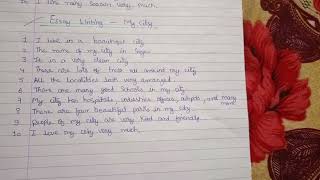 I like rainy Season very much.
Essay Writing - My city
1 I live in a beautiful city
2 The name of my city is
3 It is a very clean city
4 There are lots of trees all around my city
5 All the localities are well arranged
6 There are many good Schools in my city
7 My city has hospitals, industries, offices, airports, and many more
8 There are four beautiful parks in my city.
9 People of my city are very kind and friendly.
10 I love my city very much.